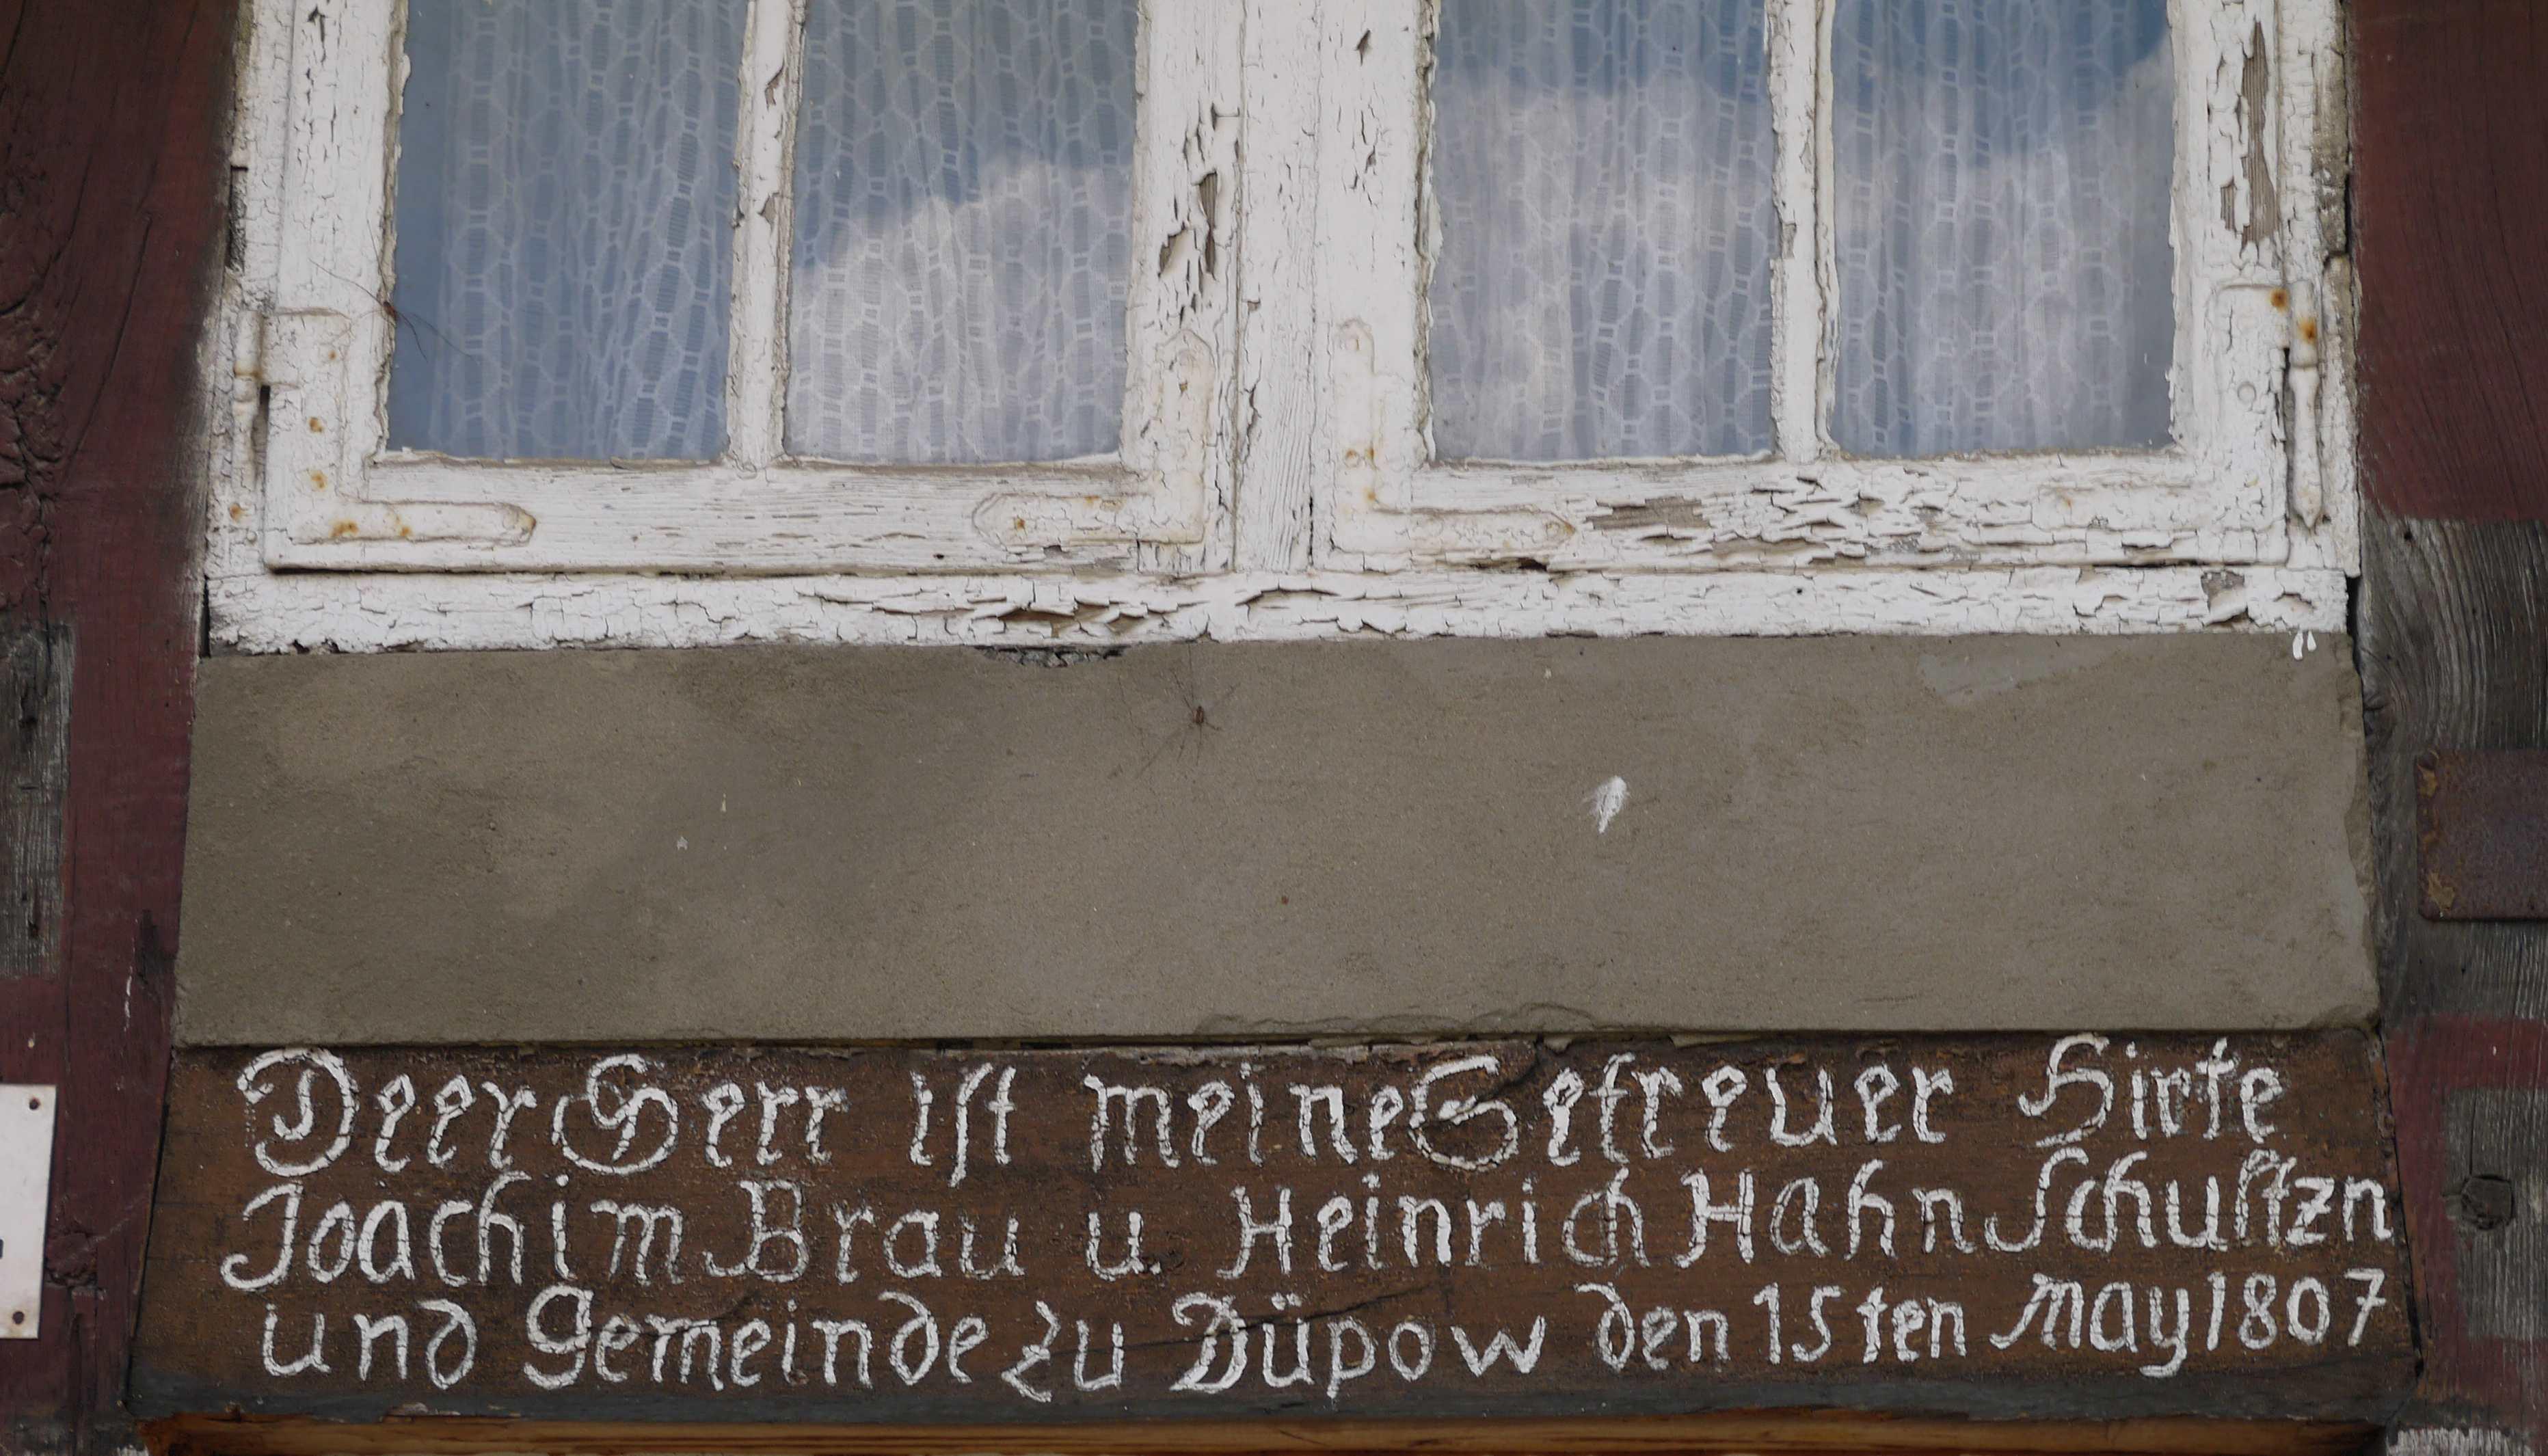 Deer Herr ist meine Getreuer Hirte
Joachim Brau u. Heinrich Hahn Schultzn
und Gemeinde zu Düpow den 15ten May 1807